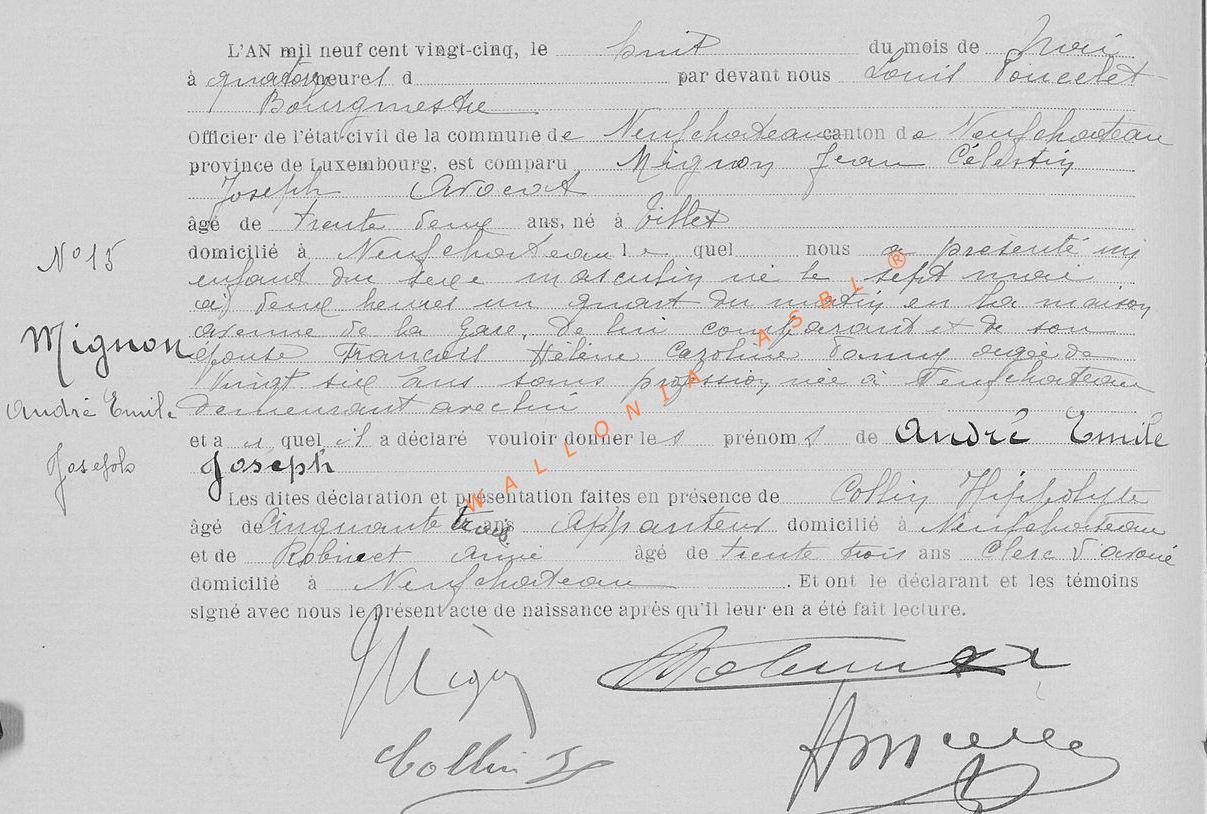 L'AN mil neuf cent vingt-cinq, le huit du mois de Mai
à quatorze heures d par devant nous Louis Poncelet
Bourgmestre
Officier de l'état-civil de la commune de Neufchateau canton de Neufchateau
province de Luxembourg, est comparu Mignon Jean Célestin
Joseph Avocat
âgé de trente deux ans, né à Tillet
N° 15
domicilié à Neufchateau le quel nous a présenté un
enfant du sexe masculin né le sept mai
à deux heures un quart du matin en sa maison
avenue de la Gare, de lui comparant et de son
Mignon
épouse François Hélène Caroline Fanny agée de
vingt six ans sans profession née à Neufchateau
André Emile
demeurant avec lui
et a u quel il a déclaré vouloir donner les prénoms de André Emile
Joseph
Joseph
Les dites déclaration et présentation faites en présence de Collin Hippolyte
âgé de Cinquante trois ans appariteur domicilié à Neufchateau
et de Robinet Aimé âgé de trente trois ans Clerc d'avoué
domicilié à Neufchateau. Et ont le déclarant et les témoins
signé avec nous le présent acte de naissance après qu'il leur en a été fait lecture.
Collin
WALLONIA ASBL ®